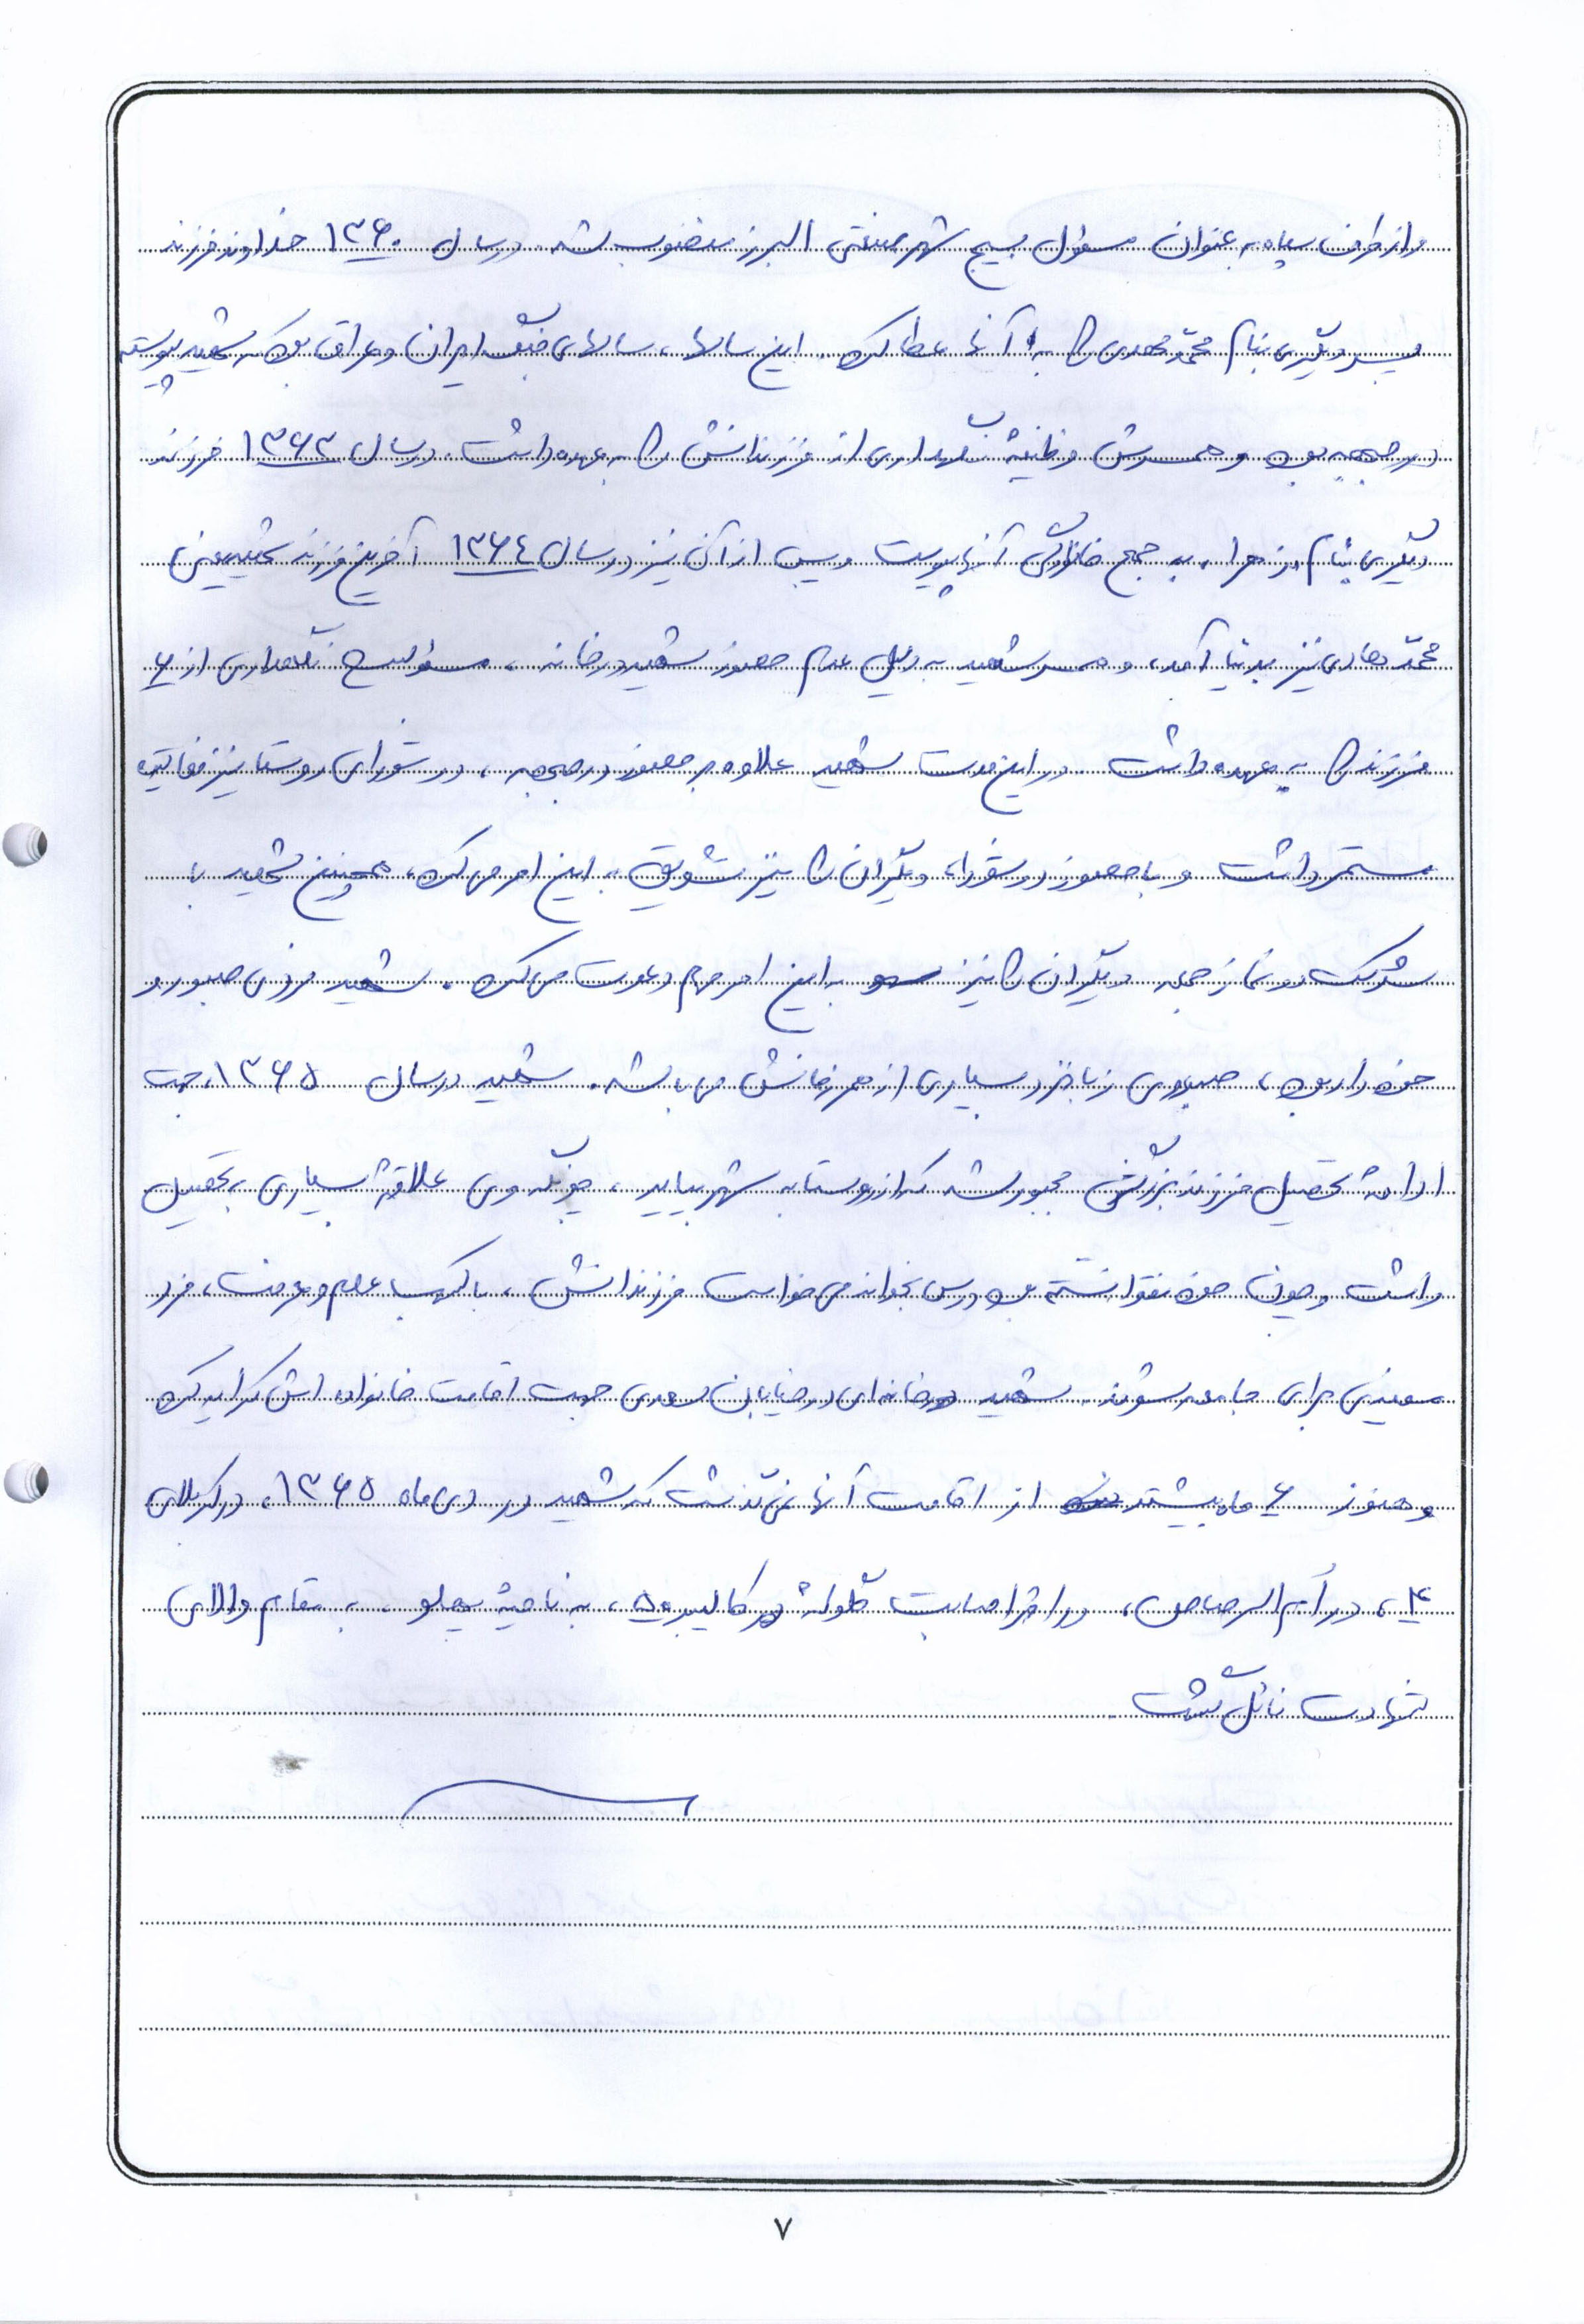 و از طرف سپاه به عنوان مسئول بسیج شهر صنعتی البرز منصوب شد. در سال ۱۳۶۰ خداوند فرزند
پسر دیگری بنام محمدمهدی را به آنها عطا کرد. این سالها، سالهای جنگ ایران و عراق بود که شهید پیوسته
در جبهه بود و همسرش وظیفهٔ نگهداری از فرزندانش را به عهده داشت. در سال ۱۳۶۳ فرزند
دیگری بنام زهرا، به جمع خانوادگی آنها پیوست و پس از آن نیز در سال ۱۳۶۴ آخرین فرزند شهید یعنی
محمدهادی نیز بدنیا آمد، و همسر شهید به دلیل عدم حضور شهید در خانه، مسئولیت نگهداری از ۶
فرزند را به عهده داشت. در این مدت شهید علاوه بر حضور در جبهه، در شورای روستا نیز فعالیت
مستمر داشت و با حضور در شورا، دیگران را نیز تشویق به این امر می‌کرد، همچنین شهید با
شرکت در نماز جمعه دیگران را نیز به این امر مهم دعوت می‌کرد. شهید مردی صبور و
خوددار بود، صبوری زبانزد بسیاری از همرزمانش می‌باشد. شهید در سال ۱۳۶۵، جهت
ادامهٔ تحصیل فرزند بزرگش مجبور شد که از روستا به شهر بیاید، چونکه وی علاقهٔ بسیاری به تحصیل
داشت و چون خود نتوانسته بود درس بخواند می‌خواست فرزندانش، با کسب علم و معرفت، فرد
مفیدی برای جامعه شوند. شهید خانه‌ای در خیابان سعدی جهت اقامت خانواده اش کرایه کرد
و هنوز ۶ ماه بیشتر از اقامت آنها نمی‌گذشت که شهید در دی ماه ۱۳۶۵، در کربلای
۴، در ام الرصاص، در اثر اصابت گلوله کالیبر ۵۰، به ناحیهٔ پهلو به مقام والای
شهادت نائل گشت.
۷